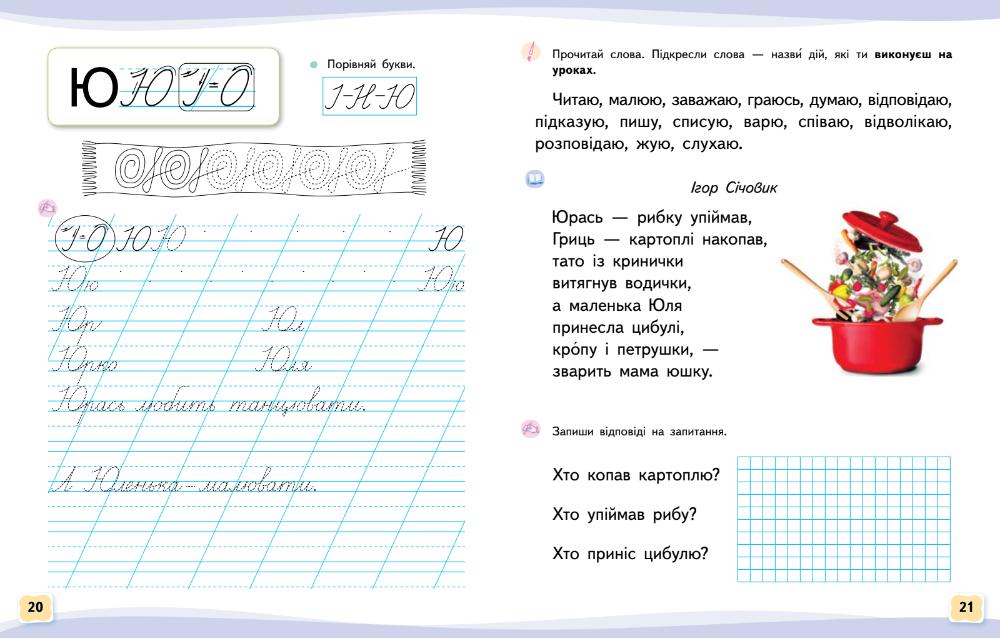 Ю Ю І = О
Порівняй букви.
І-Н-Ю
І = О Ю Ю Ю
Юю Юю
Юр Юл
Юрко Юля
Юрась любить танцювати.
А Юленька – малювати.
20
Прочитай слова. Підкресли слова — назви́ дій, які ти виконуєш на
уроках.
Читаю, малюю, заважаю, граюсь, думаю, відповідаю,
підказую, пишу, списую, варю, співаю, відволікаю,
розповідаю, жую, слухаю.
Ігор Січовик
Юрась — рибку упіймав,
Гриць — картоплі накопав,
тато із кринички
витягнув водички,
а маленька Юля
принесла цибулі,
кро́пу і петрушки, —
зварить мама юшку.
Запиши відповіді на запитання.
Хто копав картоплю?
Хто упіймав рибу?
Хто приніс цибулю?
21